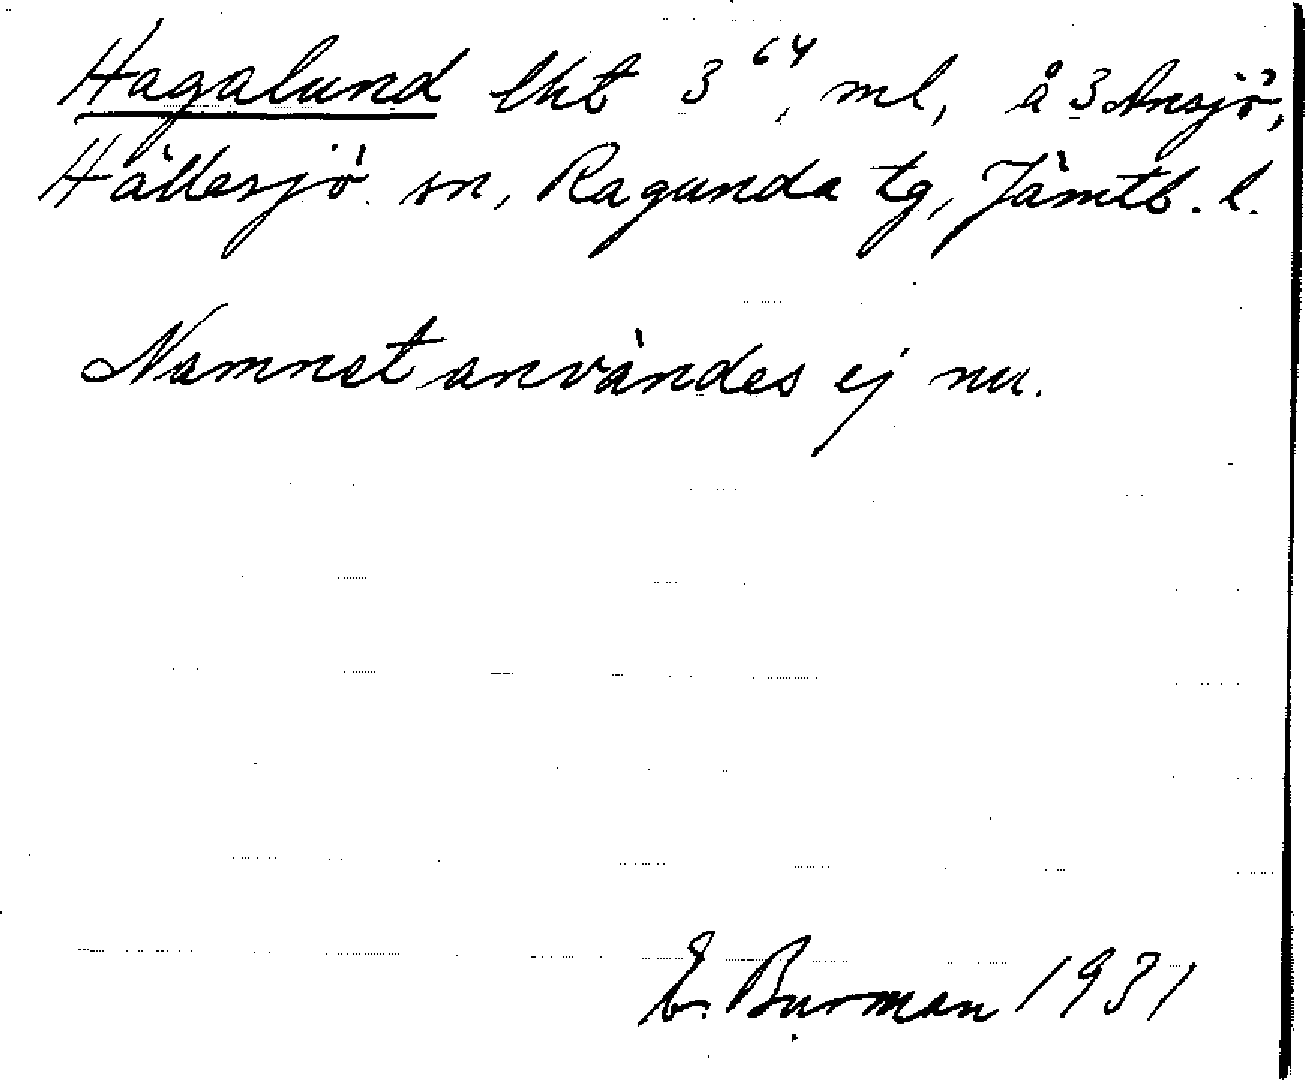 Hagalund lht 3⁶⁴, ml, å 3 Ansjö,
Hällesjö sn, Ragunda tg, Jämtl. l.
Namnet användes ej nu.
E. Burman 1931